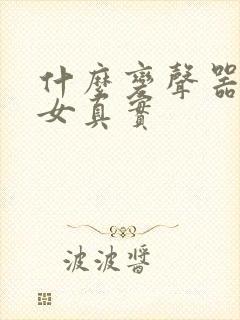 什麼變聲器
女真實
波波醬